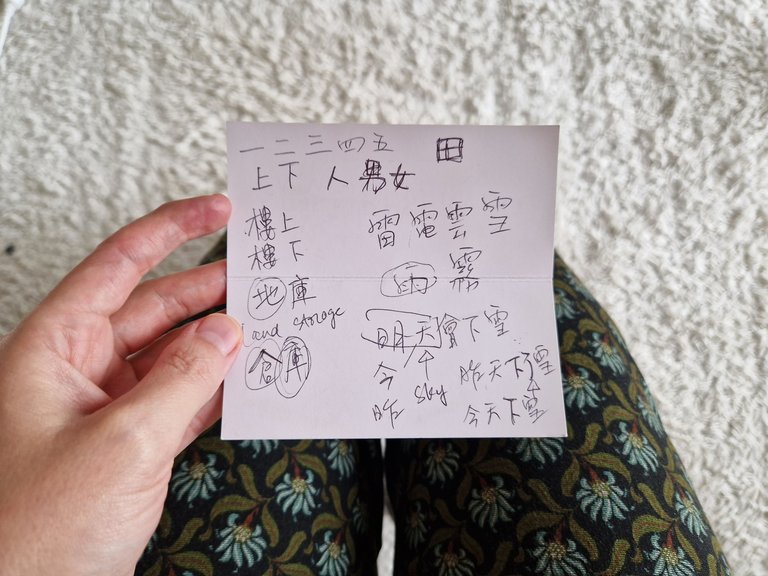 一二三四五 田
上下 人男女
樓上
樓下
地庫
Land storage
倉庫
雷電雲雪
雨霧
明天會下雪
今 sky
昨
昨天下雪
今天下雪